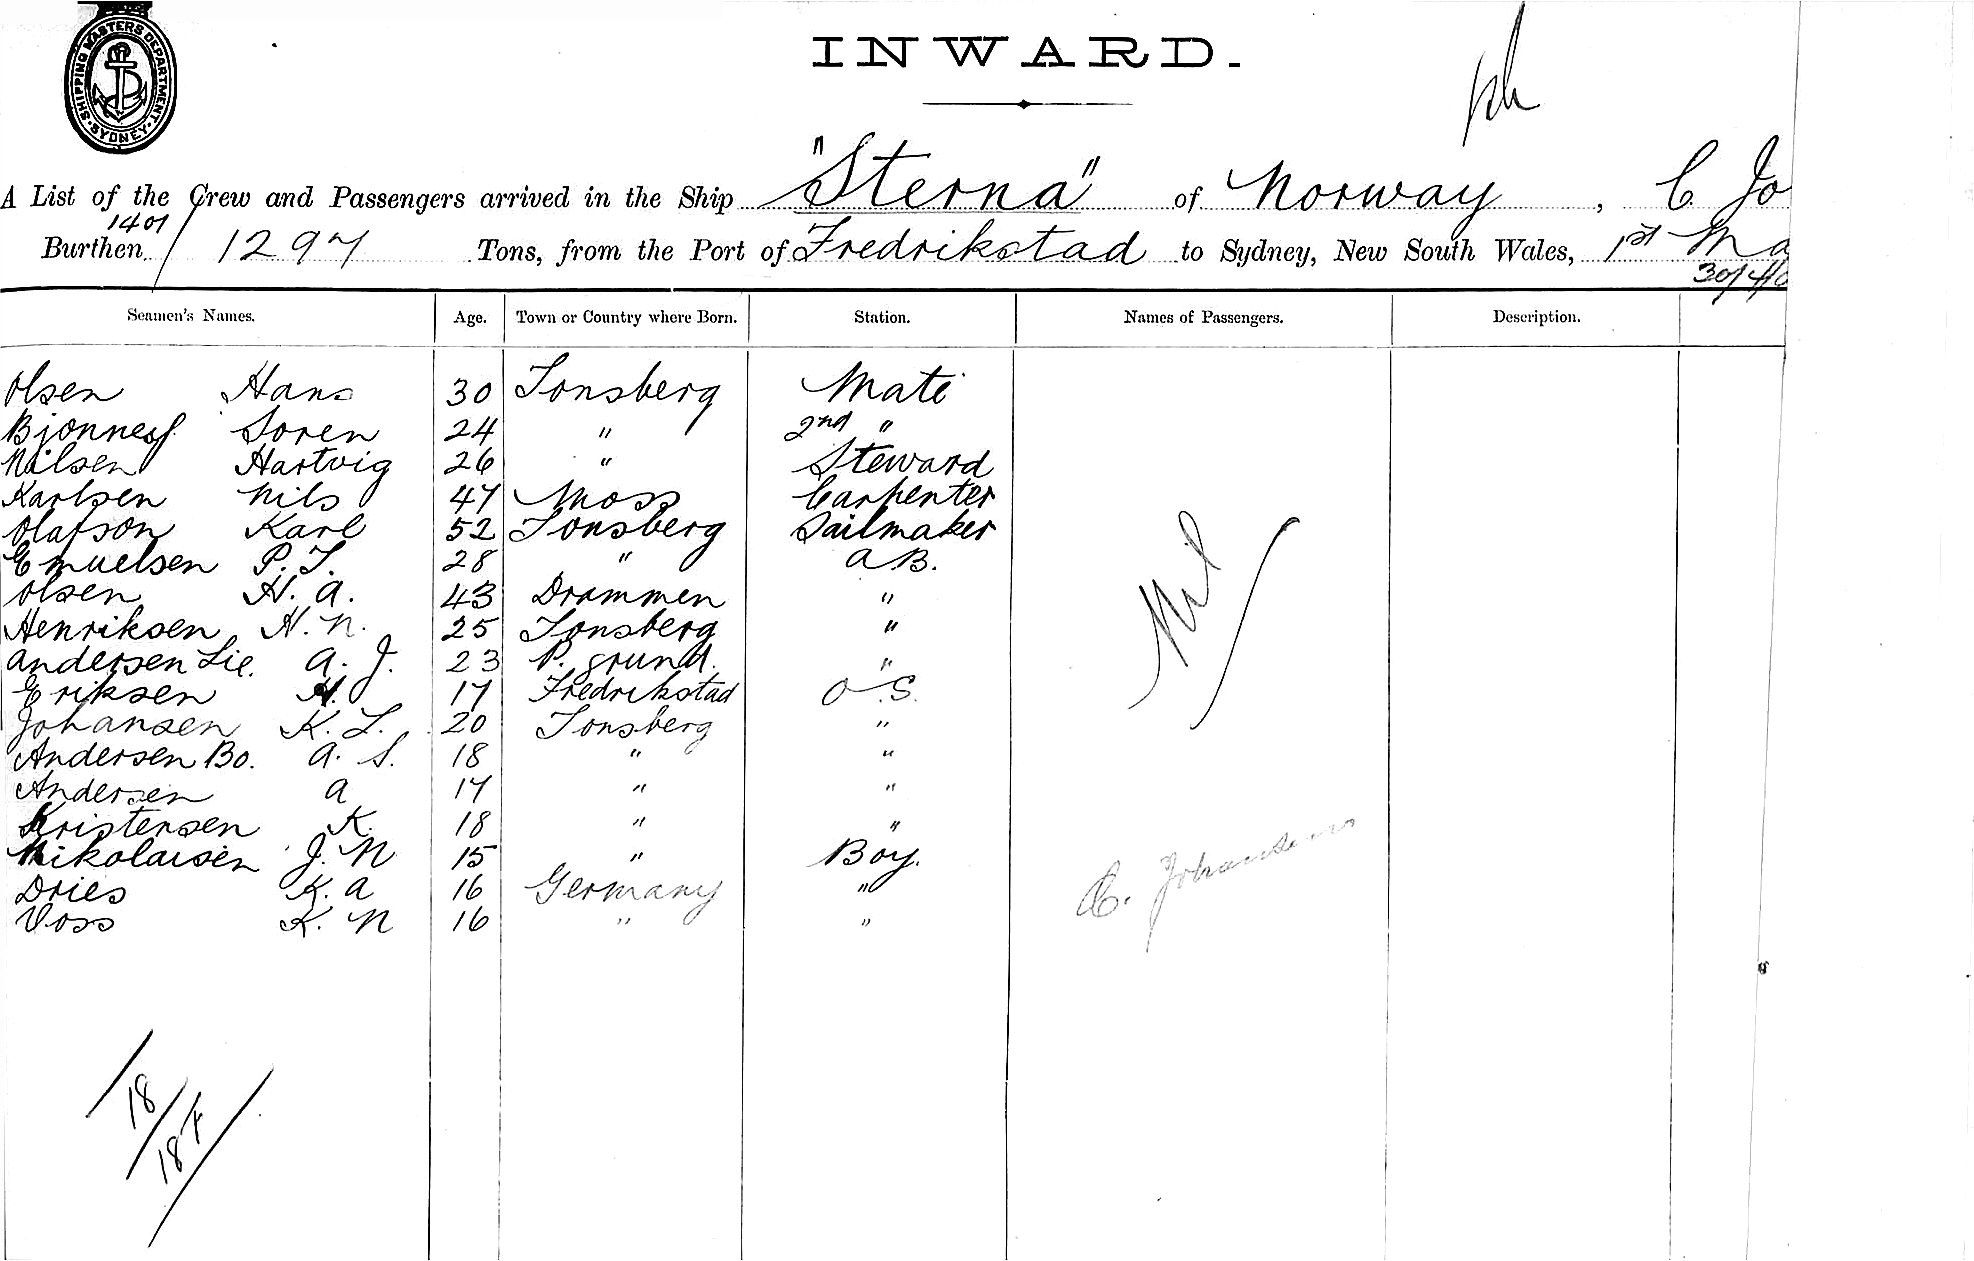 SHIPPING MASTERS DEPARTMENT. SYDNEY
INWARD.
A List of the Crew and Passengers arrived in the Ship "Sterna" of Norway, C Jo
1401/
Burthen 1297 Tons, from the Port of Fredrikstad to Sydney, New South Wales, 1st Ma
30/4/0
Seamen's Names. Age. Town or Country where Born. Station. Names of Passengers. Description.
Olsen Hans 30 Tonsberg Mate
Bjonness Soren 24 " 2nd "
Nilsen Hartvig 26 " Steward
Karlsen Nils 47 Moss Carpenter
Olafson Karl 52 Tonsberg Sailmaker
Emuelsen P. T. 28 " A B.
Olsen H. A. 43 Drammen "
Henriksen H. N. 25 Tonsberg "
Andersen Lie. A. J. 23 P. grund. "
Eriksen H. 17 Fredrikstad O. S.
Johansen K. L. 20 Tonsberg "
Andersen Bo. A. S. 18 " "
Andersen A 17 " "
Kristensen K. 18 " "
Nikolaisen J. N 15 " Boy.
Dries K. A 16 Germany "
Voss K. N 16 " "
Nil
C. Johansen
18
18 F